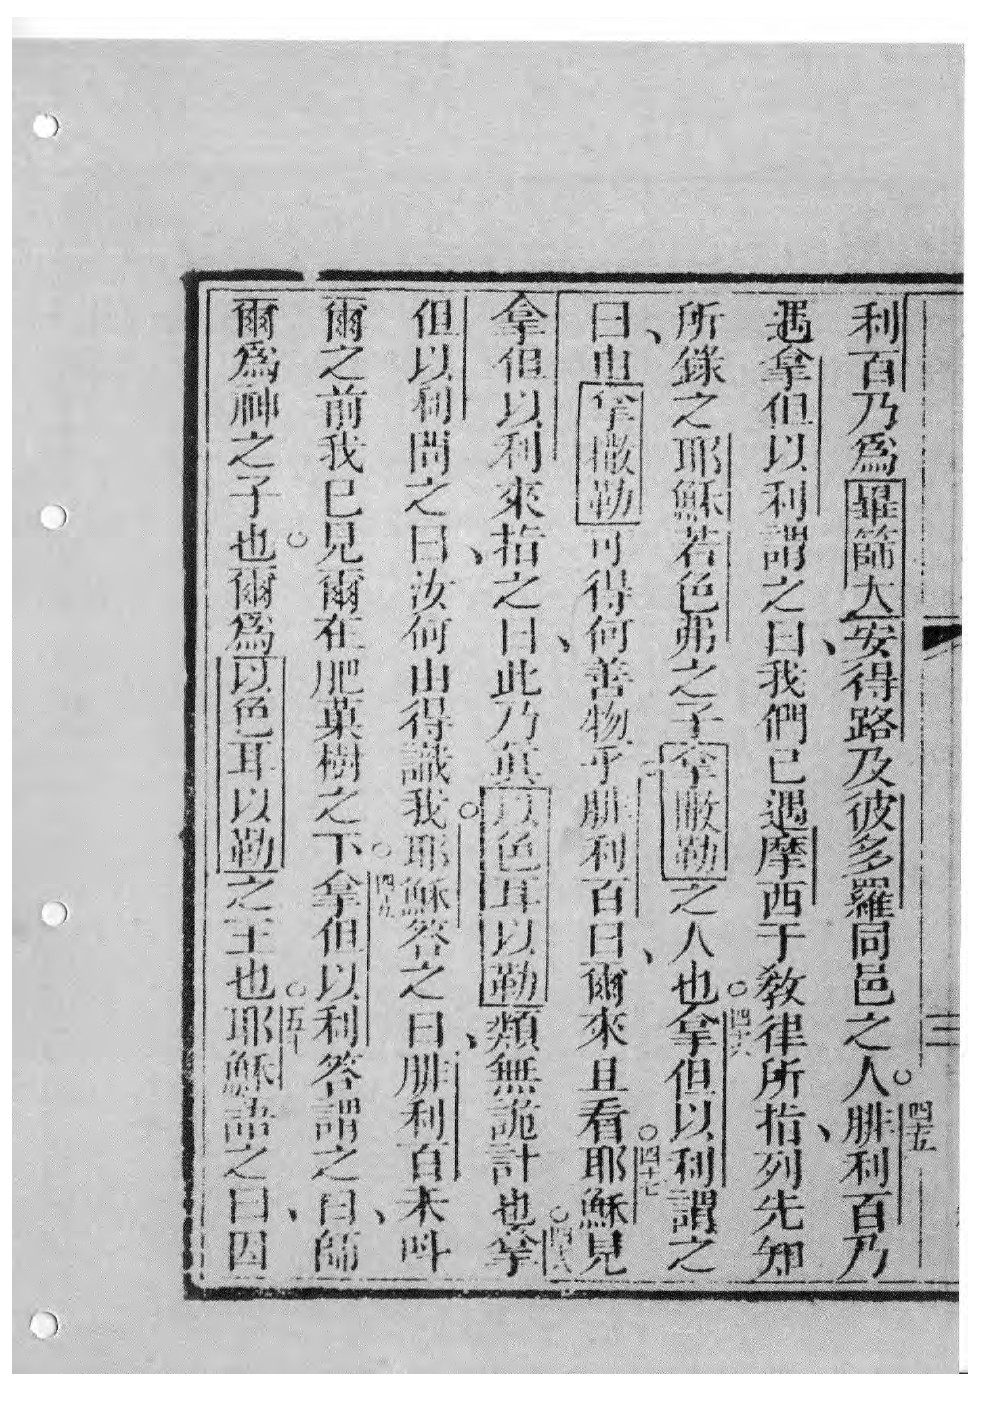 利百乃為畢篩大安得路及彼多羅同邑之人。四十五腓利百乃
遇拿但以利謂之曰、我們已遇摩西于教律所指、列先知
所錄之耶穌若色弗之子拿撒勒之人也。四十六拿但以利謂之
曰、由拿撒勒可得何善物乎腓利百曰、爾來且看。四十七耶穌見
拿但以利來指之曰、此乃真以色耳以勒類無詭計也。四十八拿
但以利問之曰、汝何由得識我。耶穌答之曰、腓利百未呌
爾之前我已見爾在肥菓樹之下。四十九拿但以利答謂之曰、師
爾為神之子也。爾為以色耳以勒之王也。五十耶穌語之曰、因